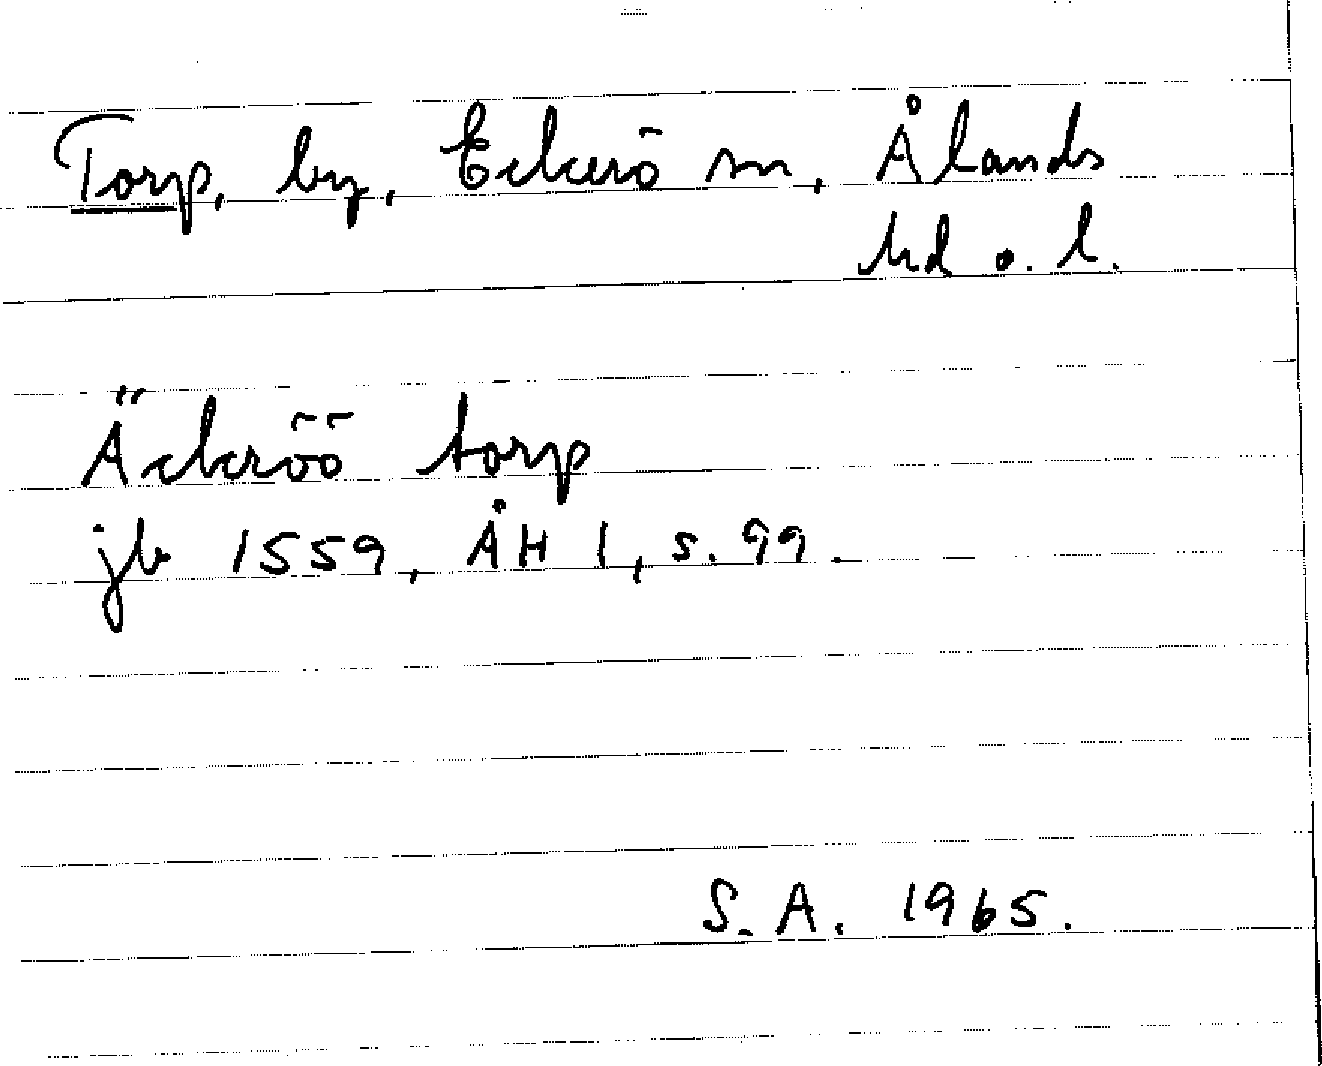 Torp, by, Eckerö sn, Ålands
hd o. l.
Äckröö torp
jb 1559, ÅH 1, s. 99.
S. A. 1965.